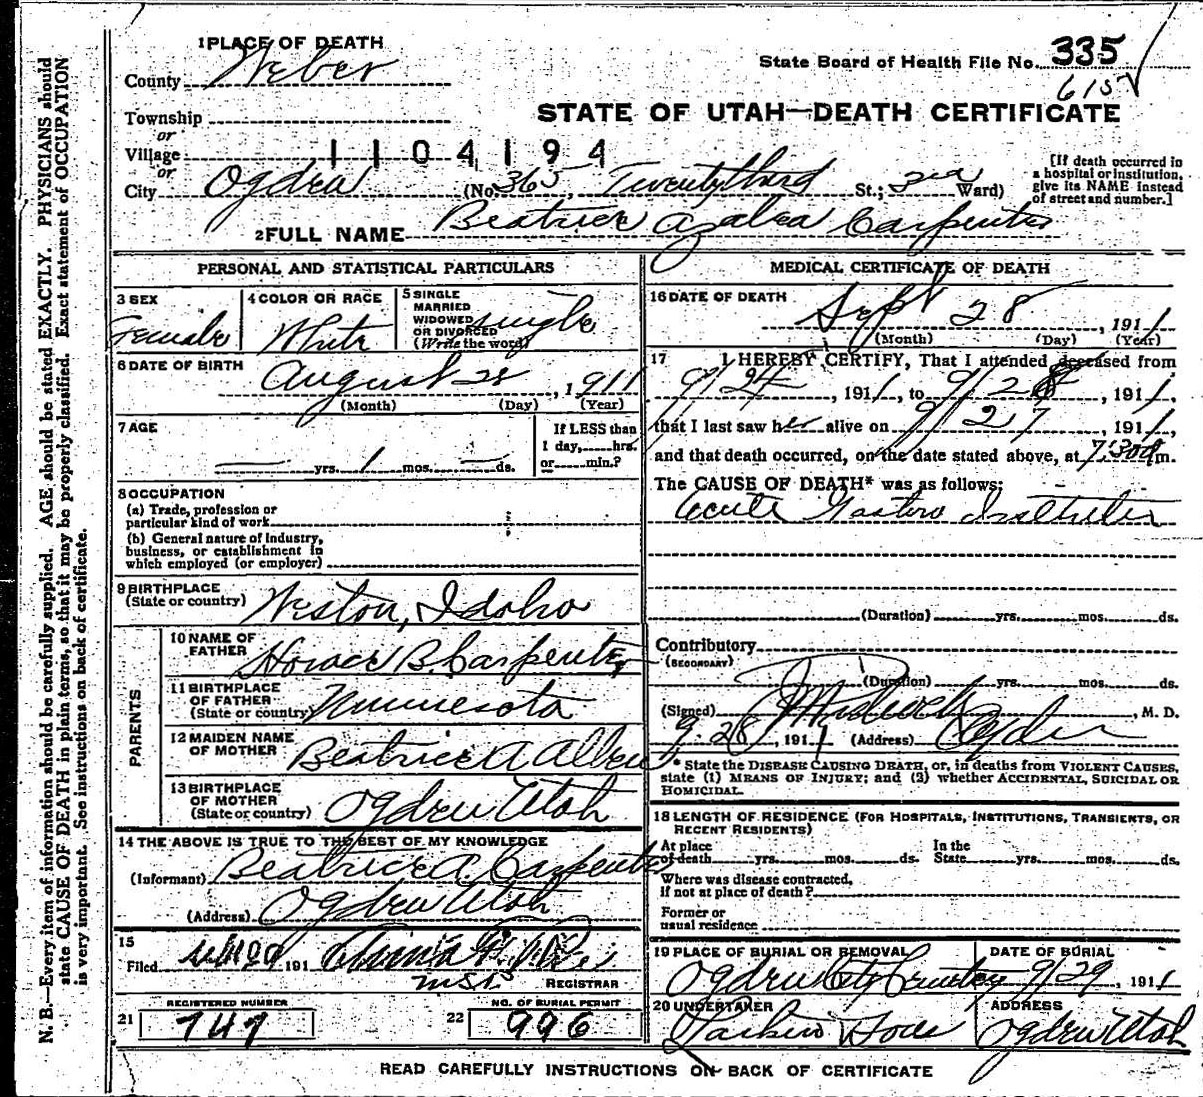 1 PLACE OF DEATH
County Weber
State Board of Health File No. 335
6152
Township
or
Village
1104194
or
City Ogden (No. 365, Twentythird St.; 3rd Ward)
STATE OF UTAH—DEATH CERTIFICATE
[If death occurred in
a hospital or institution,
give its NAME instead
of street and number.]
2 FULL NAME Beatrice Azalea Carpenter
PERSONAL AND STATISTICAL PARTICULARS
3 SEX
Female
4 COLOR OR RACE
White
5 SINGLE
MARRIED
WIDOWED
OR DIVORCED
(Write the word)
single
6 DATE OF BIRTH
August 28, 1911
(Month) (Day) (Year)
7 AGE
— yrs. 1 mos. — ds.
If LESS than
1 day, hrs.
or min.?
8 OCCUPATION
(a) Trade, profession or
particular kind of work
(b) General nature of industry,
business, or establishment in
which employed (or employer)
9 BIRTHPLACE
(State or country) Weston, Idaho
PARENTS
10 NAME OF
FATHER Horace B. Carpenter
11 BIRTHPLACE
OF FATHER
(State or country) Minnesota
12 MAIDEN NAME
OF MOTHER Beatrice A Allen
13 BIRTHPLACE
OF MOTHER
(State or country) Ogden Utah
14 THE ABOVE IS TRUE TO THE BEST OF MY KNOWLEDGE
(Informant) Beatrice A. Carpenter
(Address) Ogden Utah
15
Filed 191
REGISTRAR
REGISTERED NUMBER
21 747
NO. OF BURIAL PERMIT
22 996
MEDICAL CERTIFICATE OF DEATH
16 DATE OF DEATH
Sept 28, 1911
(Month) (Day) (Year)
17 I HEREBY CERTIFY, That I attended deceased from
9/24, 1911, to 9/28, 1911,
that I last saw her alive on 9/27, 1911,
and that death occurred, on the date stated above, at 7:30 a m.
The CAUSE OF DEATH* was as follows:
Acute Gastro
(Duration) yrs. mos. ds.
Contributory
(SECONDARY)
(Duration) yrs. mos. ds.
(Signed) , M. D.
9/28, 1911 (Address) Ogden
* State the DISEASE CAUSING DEATH, or, in deaths from VIOLENT CAUSES,
state (1) MEANS OF INJURY; and (2) whether ACCIDENTAL, SUICIDAL OR
HOMICIDAL.
18 LENGTH OF RESIDENCE (FOR HOSPITALS, INSTITUTIONS, TRANSIENTS, OR
RECENT RESIDENTS)
At place
of death yrs. mos. ds. In the
State yrs. mos. ds.
Where was disease contracted,
if not at place of death?
Former or
usual residence
19 PLACE OF BURIAL OR REMOVAL
Ogden City Cemetery
DATE OF BURIAL
9/29, 1911
20 UNDERTAKER
Larkin Sons
ADDRESS
Ogden Utah
READ CAREFULLY INSTRUCTIONS ON BACK OF CERTIFICATE
N. B.—Every item of information should be carefully supplied. AGE should be stated EXACTLY. PHYSICIANS should
state CAUSE OF DEATH in plain terms, so that it may be properly classified. Exact statement of OCCUPATION
is very important. See instructions on back of certificate.